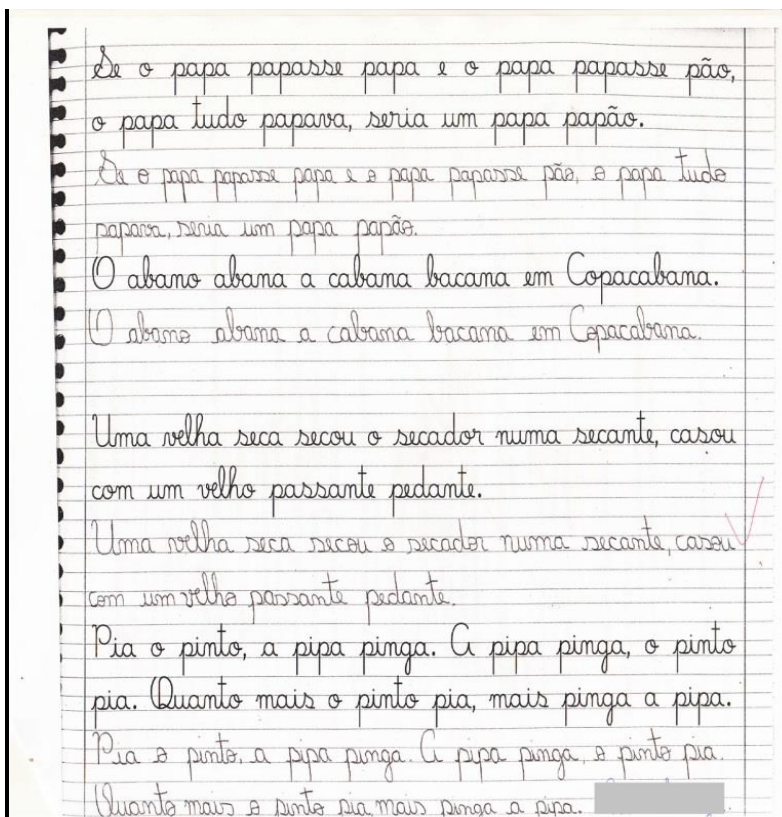 Se o papa papasse papa e o papa papasse pão,
o papa tudo papava, seria um papa papão.
Se o papa papasse papa e o papa papasse pão, o papa tudo
papava, seria um papa papão.
O abano abana a cabana bacana em Copacabana.
O abano abana a cabana bacana em Copacabana.
Uma velha seca secou o secador numa secante, casou
com um velho passante pedante.
Uma velha seca secou o secador numa secante, casou
com um velho passante pedante.
Pia o pinto, a pipa pinga. A pipa pinga, o pinto
pia. Quanto mais o pinto pia, mais pinga a pipa.
Pia o pinto, a pipa pinga. A pipa pinga, o pinto pia.
Quanto mais o pinto pia, mais pinga a pipa.